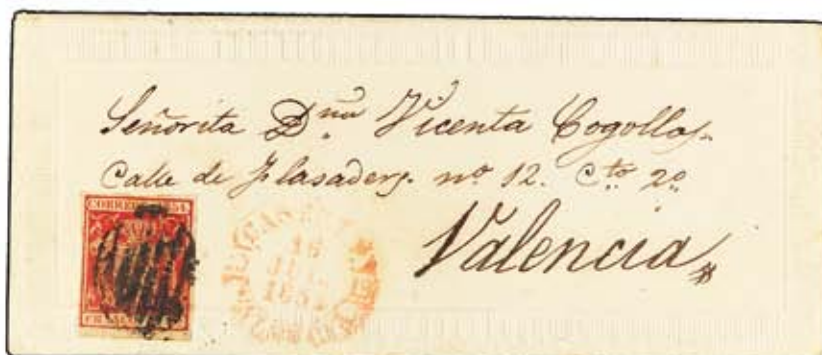 Señorita Dña Vicenta Cogollos.
Calle de Flasaders. nº 12. Cto 2º
Valencia
CORREOS 1854
16